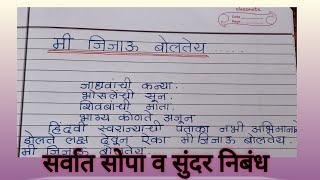 classmate
Date
Page
मी जिजाऊ बोलतेय ......
जाधवांची कन्या.
भोसलेंची सून.
शिवबाची माता.
भाग्य कोणते अजून
हिंदवी स्वराज्याची पताका नभी अभिमानाने
डोलते लक्ष देवून ऐका मी जिजाऊ बोलतेय.
मी जिजाऊ बोलतेय.
सर्वात सोपा व सुंदर निबंध